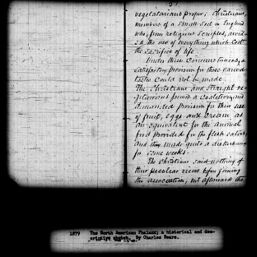 vegetarians proper; Christians,
members of a small sect in England
who, from religious scruples, avoid-
ed the use of everything which cost
the sacrifice of life.
Under these circumstances, a
satisfactory provision for these varied
tastes could not be made.
The Christians and straight ve-
getarians formed a coalition, and
demanded provision for their use
of fruit, eggs and cream, as
an equivalent for the animal
food provided for the flesh eaters,
and this made quite a disturbance
for some weeks.
The Christians said nothing of
their peculiar views before joining
the association, but afterwards the
1879 The North American Phalanx; a historical and des-
criptive sketch. By Charles Sears.